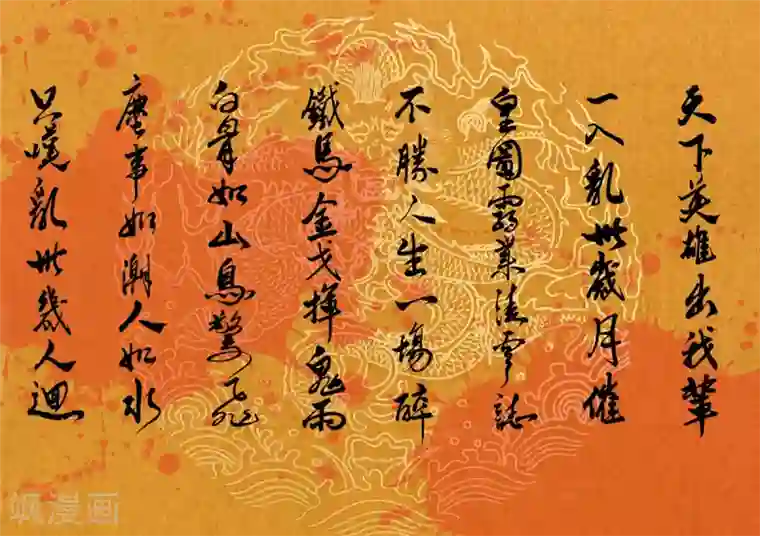 天下英雄出我輩
一入亂世歲月催
皇圖霸業
不勝人生一場醉
鐵馬金戈揮鬼雨
白骨如山鳥驚飛
塵事如潮人如水
只嘆亂世幾人迴
飒漫画